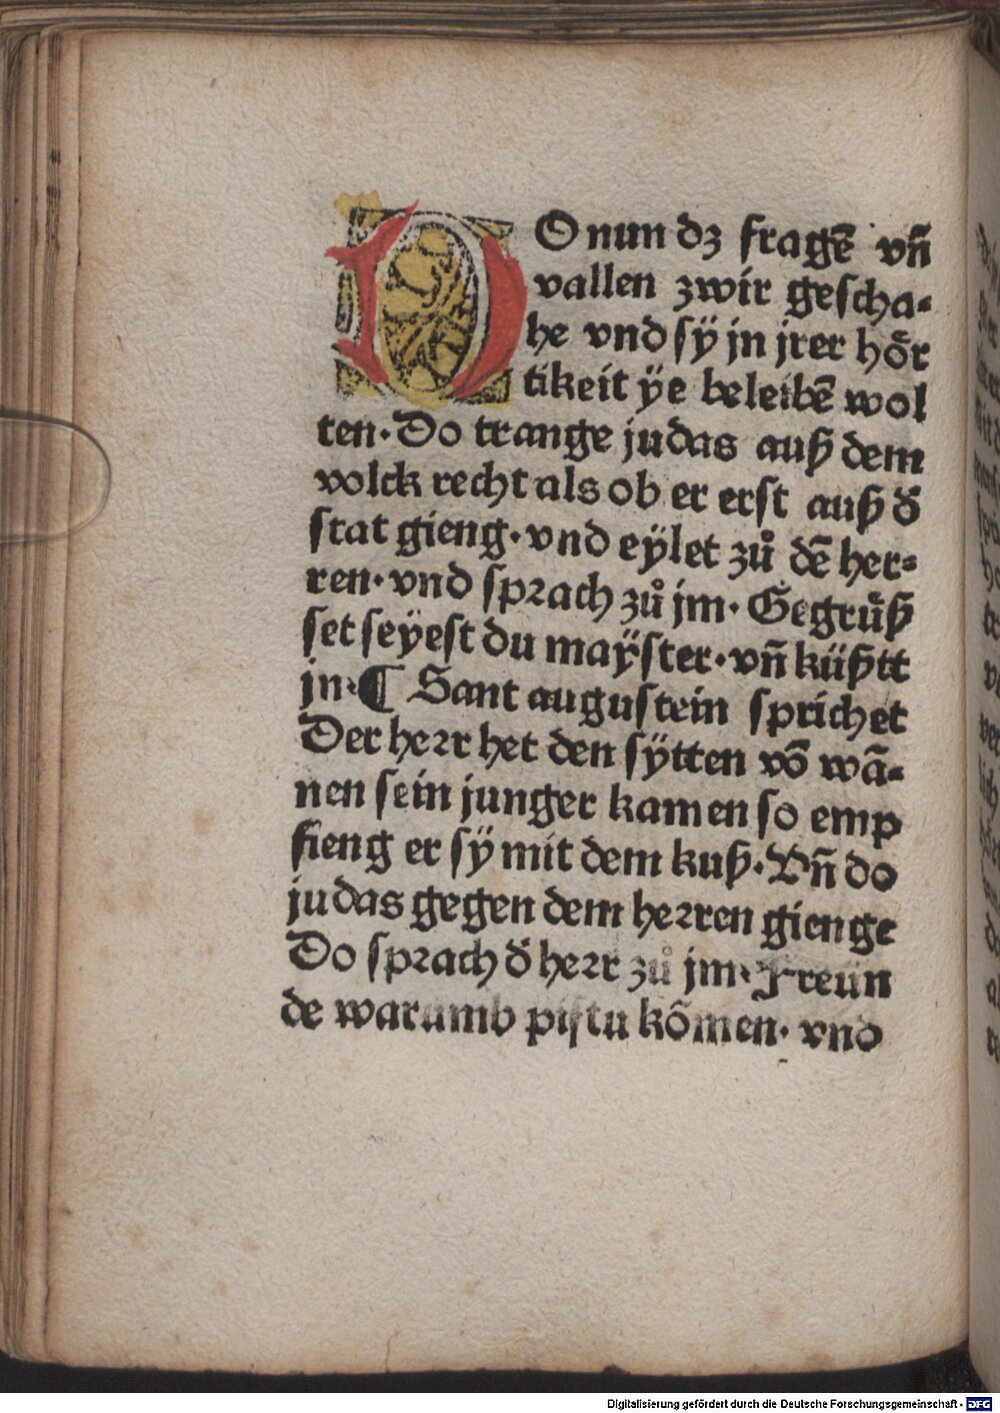 DO nun dz fragē vn̄
vallen zwir gescha⸗
he vnd sÿ jn jrer hȫr
tikeit ÿe beleibē wol
ten·Do trange judas auß dem
volck recht als ob er erst auß d̄
stat gieng·vnd eÿlet zů dē her⸗
ren·vnd sprach zů jm·Gegrůß
set seÿest du maÿster·vn̄ küßtt
jn·¶ Sant augustein sprichet
Der herr het den sÿtten vō wā⸗
nen sein junger kamen so emp
fieng er sÿ mit dem kuß·Vn̄ do
judas gegen dem herren gienge
Do sprach d̄ herr zů jm·Freün
de warumb pistu kōmen·vnd
Digitalisierung gefördert durch die Deutsche Forschungsgemeinschaft - DFG